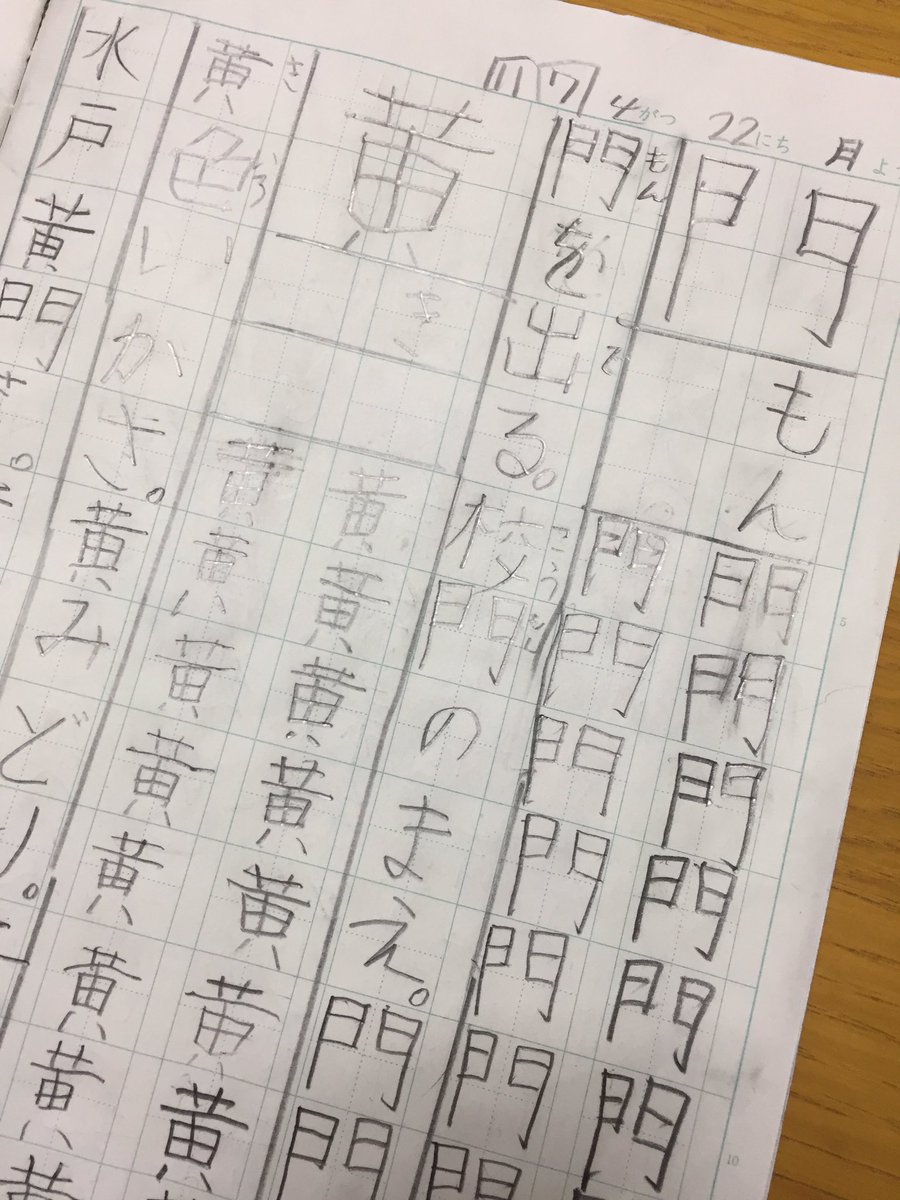 17 4がつ 22にち 月よ
門
もん
門門門門門門
門門門門門門門
門を出る。校門のまえ。門門
もん で こうもん
黄
き
黄黄黄黄黄黄黄
黄黄黄黄黄黄黄黄
黄色いかさ。黄みどり。
き いろ
水戸黄門
5
10